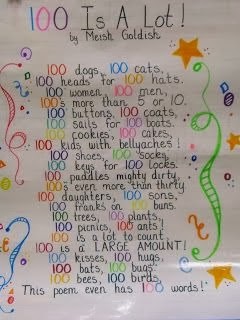 100 Is A Lot!
by Meish Goldish
100 dogs, 100 cats,
100 heads for 100 hats.
100 women, 100 men,
100's more than 5 or 10.
100 buttons, 100 coats,
100 sails for 100 boats.
100 cookies, 100 cakes,
100 kids with bellyaches!
100 shoes, 100 socks,
100 keys for 100 locks.
100 puddles mighty dirty,
100's even more than thirty.
100 daughters, 100 sons,
100 franks on 100 buns.
100 trees, 100 plants,
100 picnics, 100 ants!
100 is a lot to count,
100 is a LARGE AMOUNT!
100 kisses, 100 hugs,
100 bats, 100 bugs.
100 bees, 100 birds,
This poem even has 100 words!